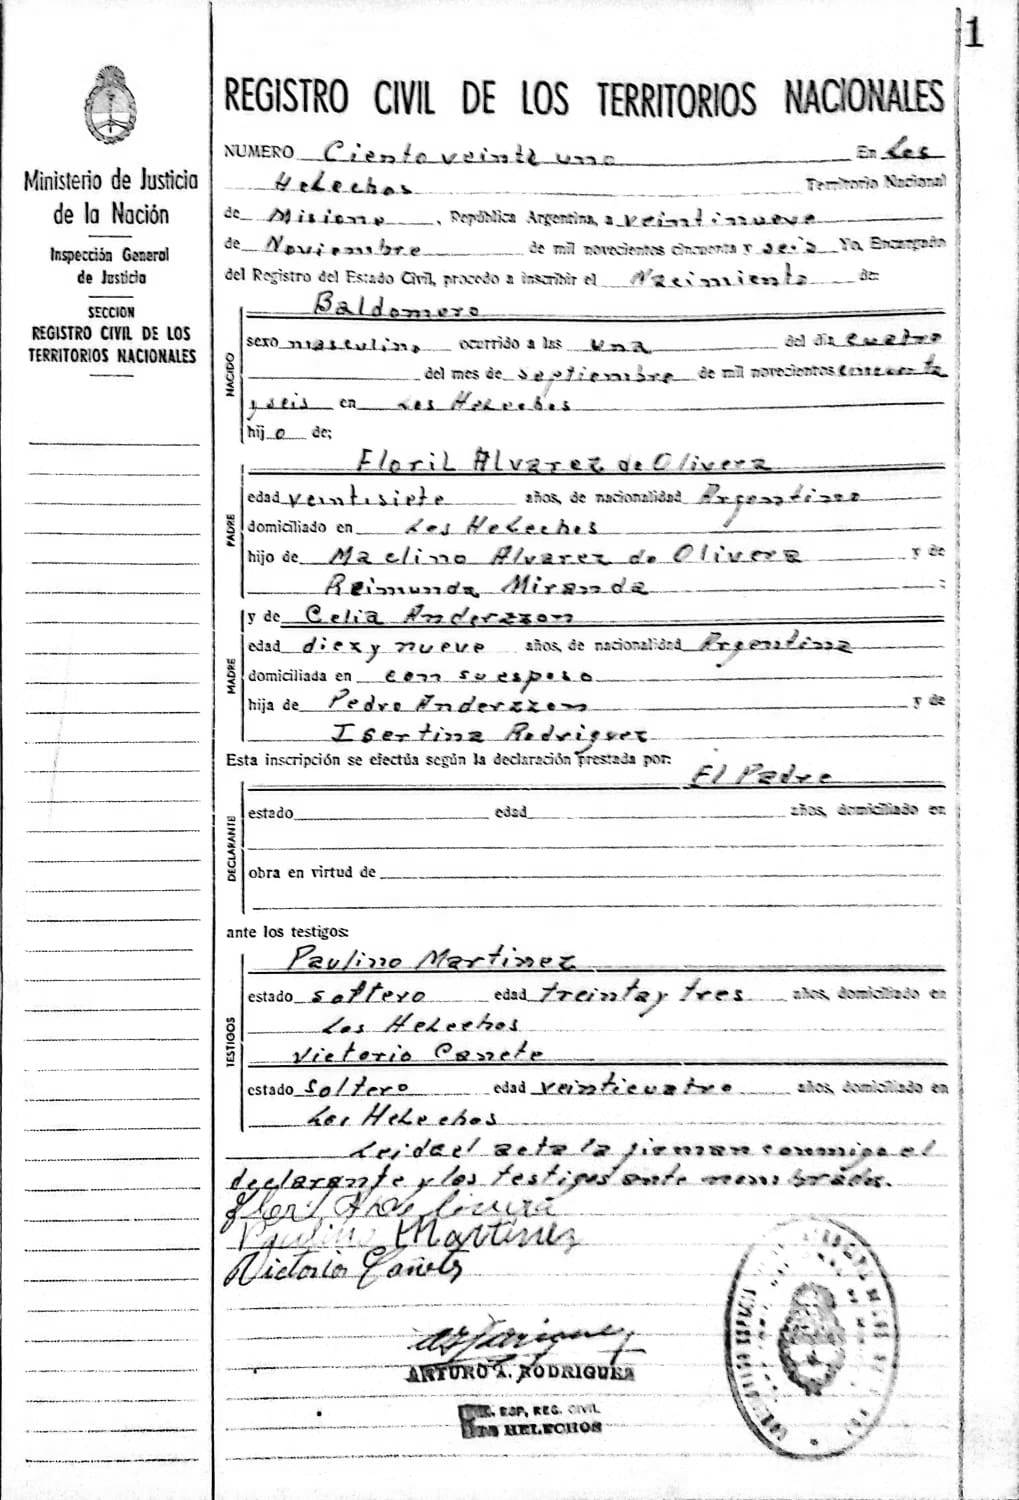 1
Ministerio de Justicia
de la Nación
Inspección General
de Justicia
SECCION
REGISTRO CIVIL DE LOS
TERRITORIOS NACIONALES
REGISTRO CIVIL DE LOS TERRITORIOS NACIONALES
NUMERO Ciento veinti uno En Los
Helechos Territorio Nacional
de Misiones, República Argentina, a veintinueve
de Noviembre de mil novecientos cincuenta y seis Yo, Encargado
del Registro del Estado Civil, procedo a inscribir el Nacimiento de:
NACIDO
Baldomero
sexo masculino ocurrido a las una del día cuatro
del mes de septiembre de mil novecientos cincuenta
y seis en Los Helechos
hijo de;
PADRE
Floril Alvarez de Olivera
edad veintisiete años, de nacionalidad Argentino
domiciliado en Los Helechos
hijo de Maclino Alvarez de Olivera y de
Reimunda Miranda ;
MADRE
y de Celia Anderzzon
edad diez y nueve años, de nacionalidad Argentina
domiciliada en con su esposo
hija de Pedro Anderzzon y de
Isertina Rodriguez
Esta inscripción se efectúa según la declaración prestada por:
El Padre
DECLARANTE
estado edad años, domiciliado en
obra en virtud de
ante los testigos:
TESTIGOS
Paulino Martinez
estado soltero edad treinta y tres años, domiciliado en
Los Helechos
Victorio Canete
estado Soltero edad veinticuatro años, domiciliado en
Los Helechos
Leida el acta la firman conmigo el
declarante y los testigos ante nombrados.
Floril A de Olivera
Paulino Martinez
Victorio Cañete
ARTURO A. RODRIGUEZ
ESP. REG. CIVIL
HELECHOS